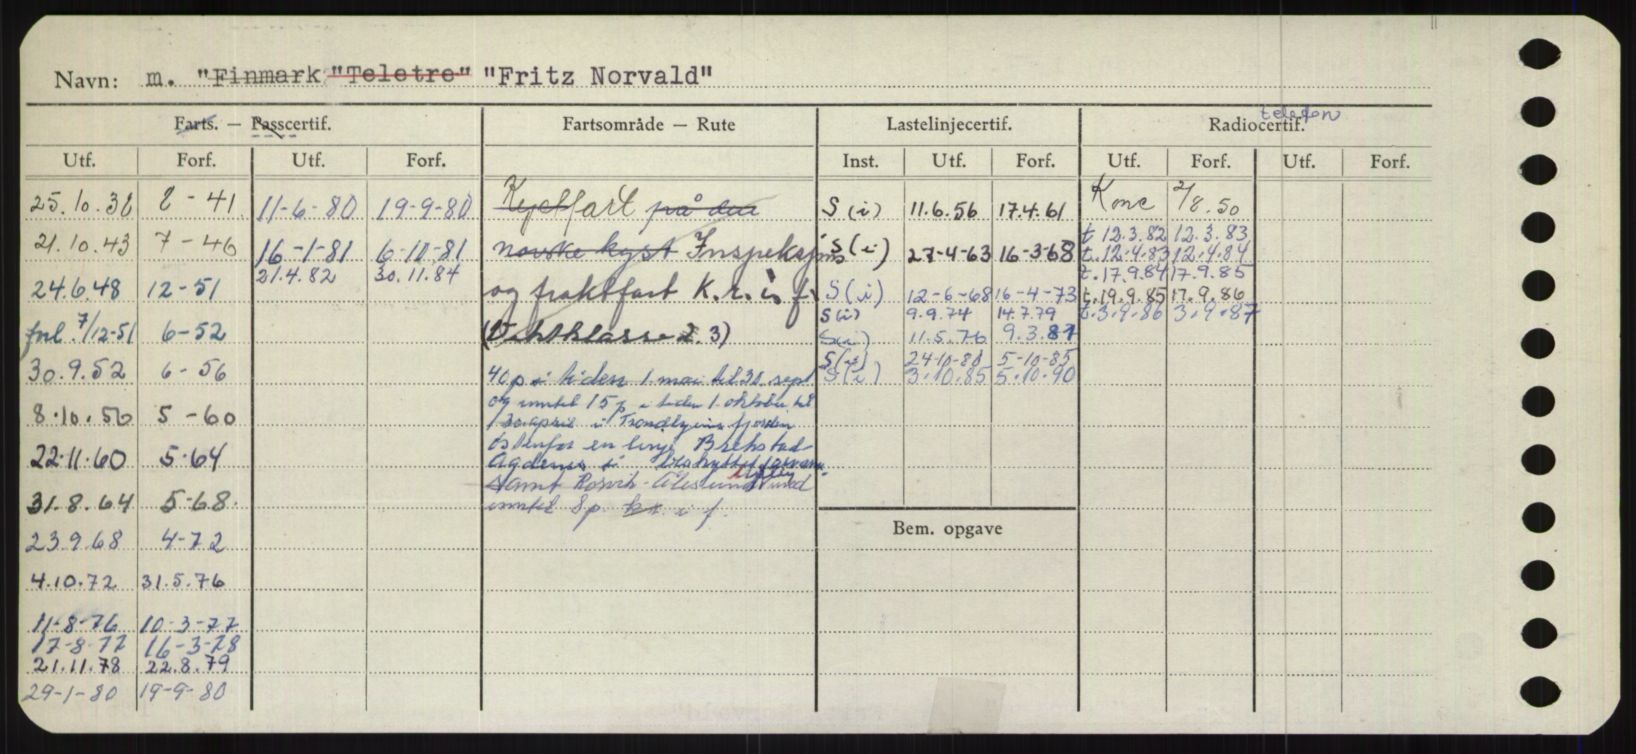 Navn: m. "Finmark "Teletre" "Fritz Norvald"
Farts. — Passcertif. Fartsområde — Rute Lastelinjecertif. Radiocertif. telefon
Utf. Forf. Utf. Forf. Inst. Utf. Forf. Utf. Forf. Utf. Forf.
25.10.38 8 - 41 11-6-80 19-9-80 Kystfart på den S (i) 11.6.56 17.4.61 Konc 2/8.50
t 12.3.82 12.3.83
21.10.43 7 - 46 16-1-81 6-10-81 norske kyst Inspeksjons S (i) 27-4-63 16-3-68 t.12.4.83 12.4.84
21.4.82 30.11.84 t.17.9.84 17.9.85
24.6.48 12-51 og fraktfart K.r. i f. S (i) 12-6-68 16-4-73 t.19.9.85 17.9.86
S (i) 9.9.74 14.7.79 t.3.9.86 3.9.87
fnl. 7/12-51 6-52 (Vektklasse 2. 3) S (i) 11.5.76 9.3.81
S (i) 24-10-80 5-10-85
30.9.52 6-56 40 p i tiden 1 mai til 30. sept S (i) 3.10.85 5.10.90
og inntil 15 p i tiden 1. oktober til
8.10.56 5-60 30 april i Trondhjemsfjorden
østenfor en linje Brekstad
22.11.60 5-64 Agdenes i beskyttet farvann
samt Rosvik - Ålesund med
31.8.64 5-68 inntil 8 p. kr. i f.
Bem. opgave
23.9.68 4-72
4.10.72 31.5.76
11-8-76 10-3-77
17-8-77 16-3-78
21.11.78 22.8.79
29-1-80 19-9-80